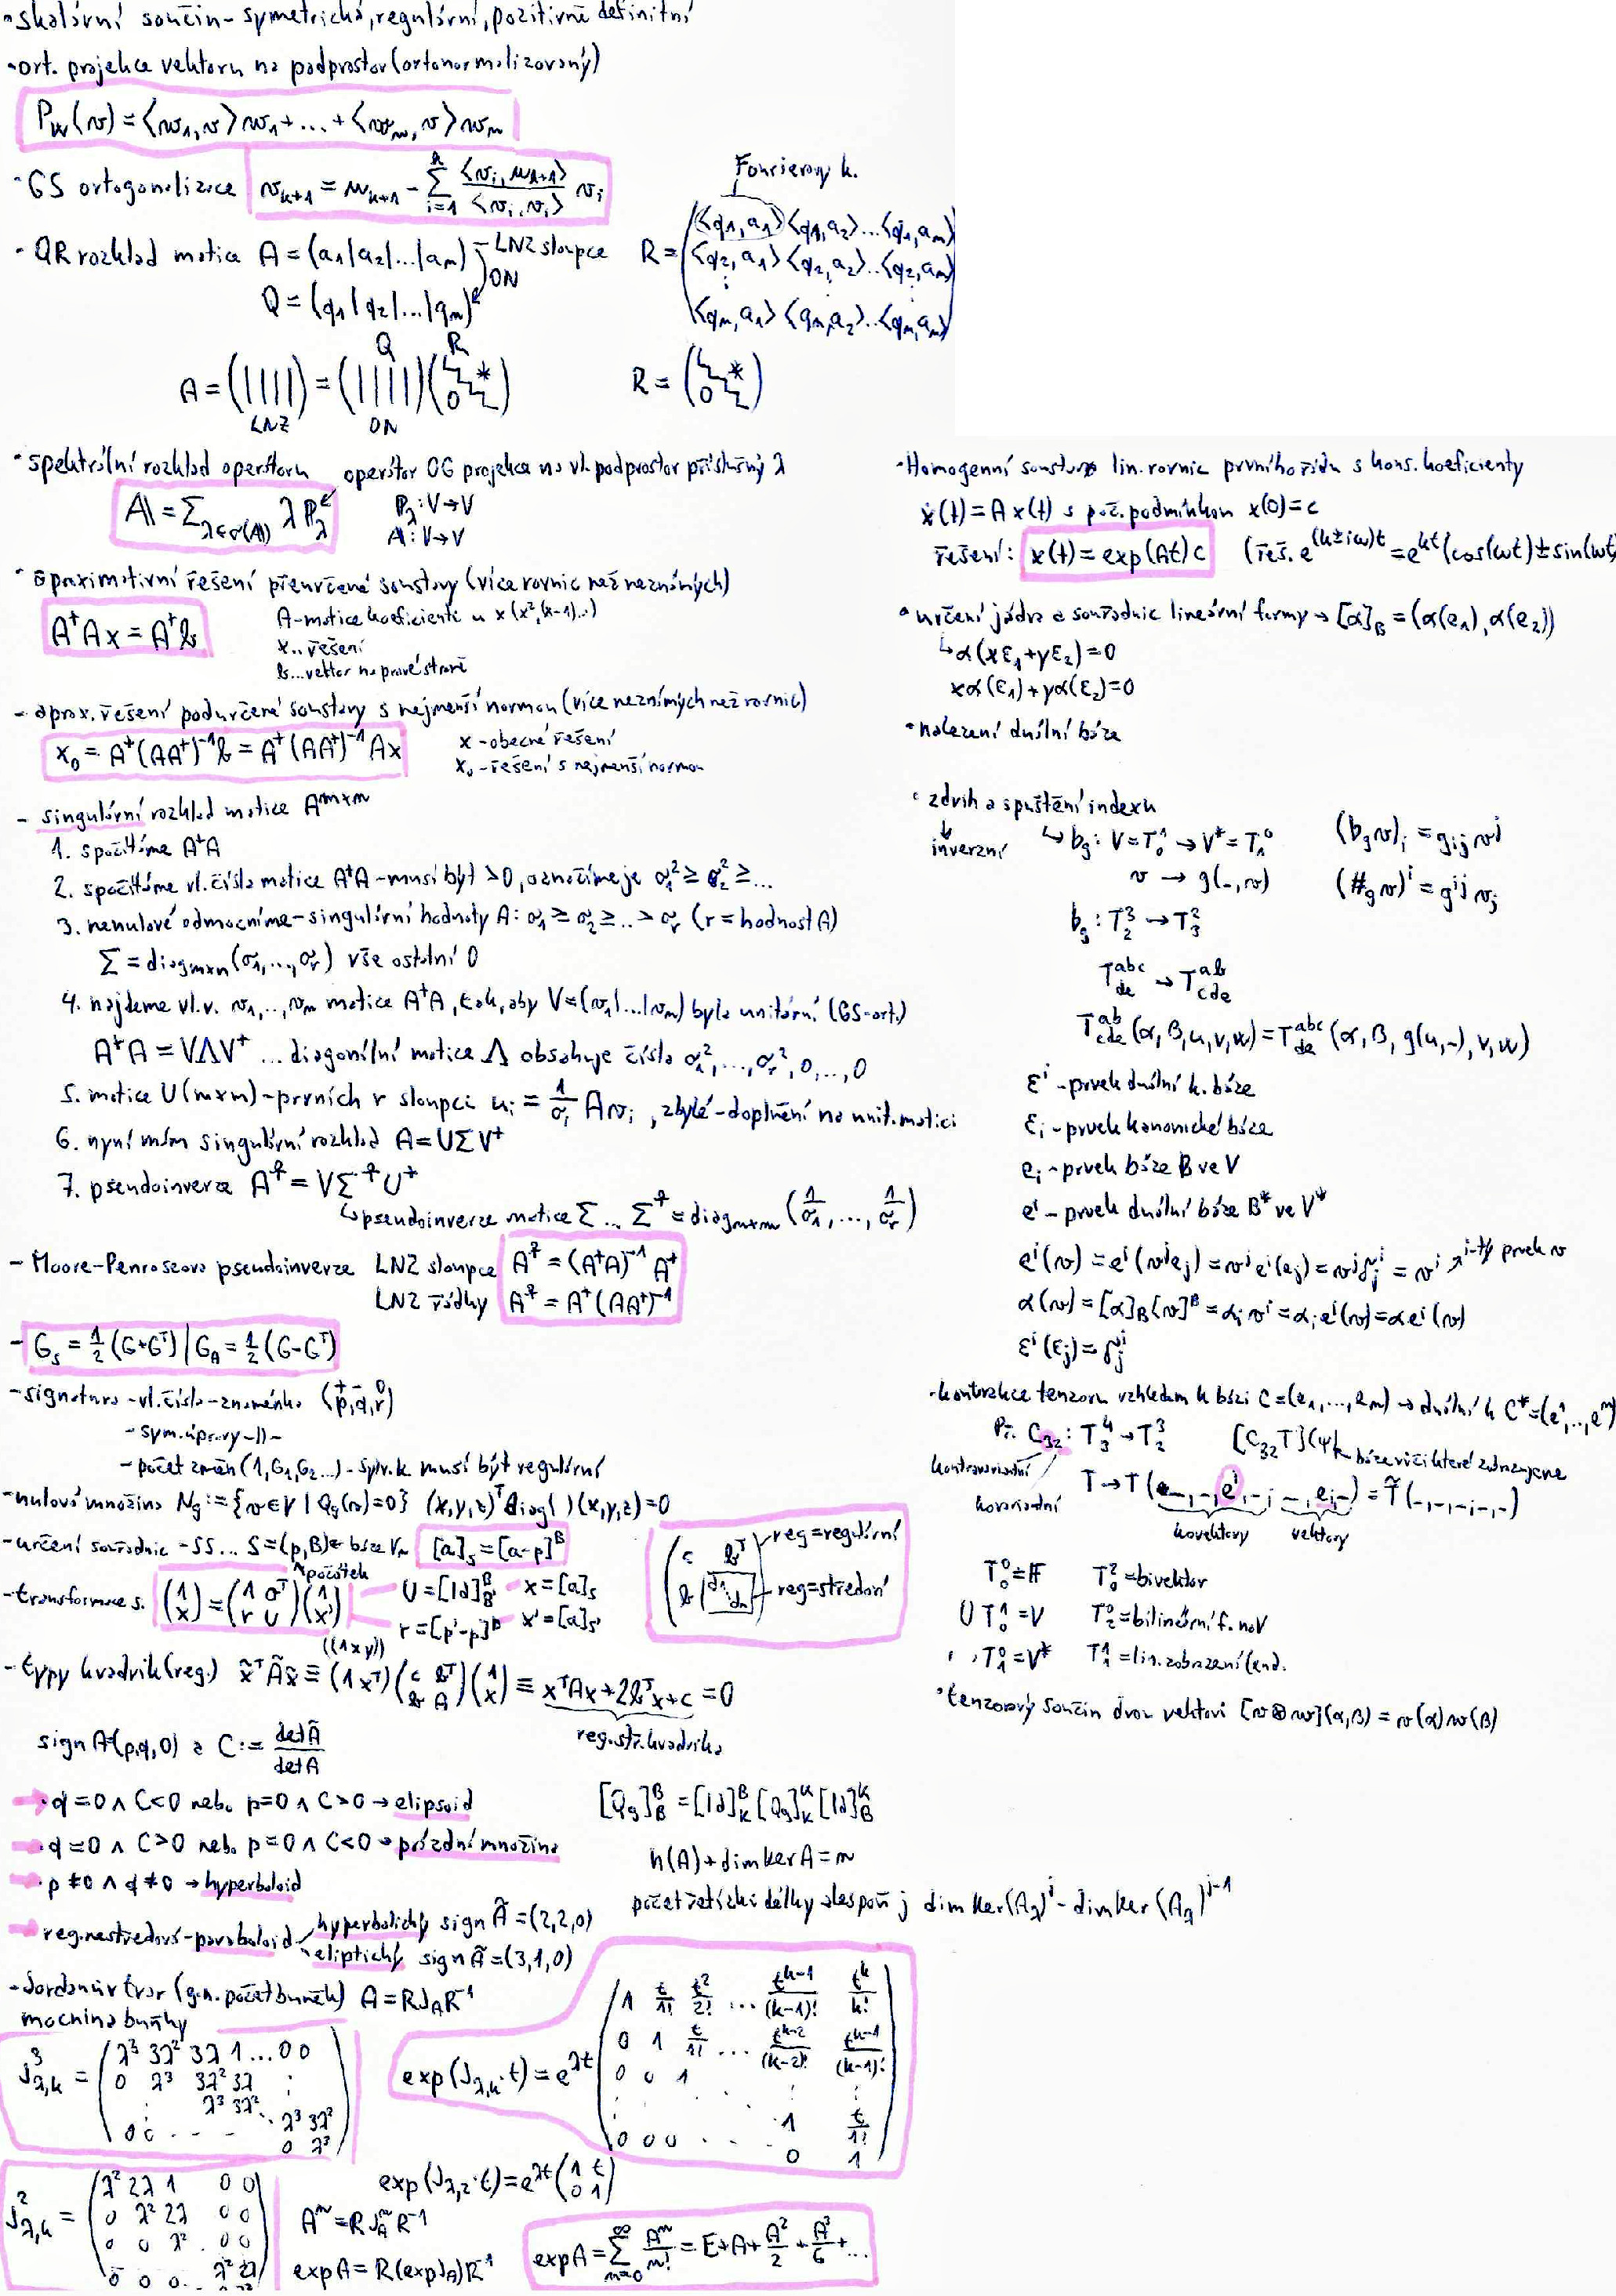 • skalární součin - symetrická, regulární, pozitivně definitní
• ort. projekce vektoru na podprostor (ortonormalizovaný)
P_W(v) = ⟨w₁,v⟩w₁ + ... + ⟨w_m,v⟩w_m
• GS ortogonalizace v_{k+1} = u_{k+1} - Σ_{i=1}^{k} ⟨v_i, u_{k+1}⟩/⟨v_i, v_i⟩ v_i
Fourierovy k.
• QR rozklad matice A = (a₁|a₂|...|a_m) - LNZ sloupce
ON
Q = (q₁|q₂|...|q_m)
R = (⟨q₁,a₁⟩ ⟨q₁,a₂⟩ ... ⟨q₁,a_m⟩
⟨q₂,a₁⟩ ⟨q₂,a₂⟩ ... ⟨q₂,a_m⟩
⋮ ⋮ ⋮
⟨q_m,a₁⟩ ⟨q_m,a₂⟩ ... ⟨q_m,a_m⟩)
Q R
A = (||||) = (||||)(0 *) R = (0 *)
LNZ ON
• spektrální rozklad operátoru operátor OG projekce na vl. podprostor příslušný λ
A = Σ_{λ∈σ(A)} λ P_λ P_λ: V→V
A: V→V
• aproximativní řešení přeurčené soustavy (více rovnic než neznámých)
A⁺Ax = A⁺b A - matice koeficientů u x (x², (x-1)...)
x.. řešení
b... vektor na pravé straně
- aprox. řešení podurčené soustavy s nejmenší normou (více neznámých než rovnic)
x₀ = A⁺(AA⁺)⁻¹b = A⁺(AA⁺)⁻¹Ax x - obecné řešení
x₀ - řešení s nejmenší normou
- singulární rozklad matice A^{m×n}
1. spočítáme A⁺A
2. spočítáme vl. čísla matice A⁺A - musí být >0, označíme je σ₁² ≥ σ₂² ≥ ...
3. nenulové odmocníme - singulární hodnoty A: σ₁ ≥ σ₂ ≥ .. > σ_r (r = hodnost A)
Σ = diag_{m×n}(σ₁,...,σ_r) vše ostatní 0
4. najdeme vl.v. v₁,..,v_m matice A⁺A, tak, aby V=(v₁|...|v_m) byla unitární (GS-ort.)
A⁺A = VΛV⁺ ... diagonální matice Λ obsahuje čísla σ₁²,...,σ_r², 0,...,0
5. matice U (m×m) - prvních r sloupců u_i = 1/σ_i Av_i, zbylé - doplnění na unit. matici
6. nyní mám singulární rozklad A = UΣV⁺
7. pseudoinverze A^‡ = VΣ^‡U⁺
↳ pseudoinverze matice Σ ... Σ^‡ = diag_{n×m}(1/σ₁,...,1/σ_r)
- Moore-Penroseova pseudoinverze LNZ sloupce A^‡ = (A⁺A)⁻¹A⁺
LNZ řádky A^‡ = A⁺(AA⁺)⁻¹
- G_S = ½(G+Gᵀ) | G_A = ½(G-Gᵀ)
- signatura - vl. čísla - znaménka (p,q,r) + - 0
- sym. úpravy -||-
- počet změn (1,G₁,G₂...) - Sylv. k musí být regulární
- nulová množina N_g := {v∈V | Q_g(v)=0} (x,y,z)ᵀ diag( )(x,y,z)=0
- určení souřadnic - SS... S=(p,B) ← báze V_n [a]_S = [a-p]^B
počátek
- transformace s. (1 x) = (1 0ᵀ r U)(1 x') U = [Id]^B_{B'} x = [a]_S
r = [p'-p]^B x' = [a]_{S'}
(c bᵀ b λ₁...λ_n) reg = regulární
reg = středová
((1 x y))
- typy kvadrik (reg.) x̃ᵀÃx̃ ≡ (1 xᵀ)(c bᵀ b A)(1 x) ≡ xᵀAx + 2bᵀx + c = 0
reg. stř. kvadrika
sign A (p,q,0) a C := detÃ/detA
q=0 ∧ C<0 nebo p=0 ∧ C>0 → elipsoid
q=0 ∧ C>0 nebo p=0 ∧ C<0 → prázdná množina
p≠0 ∧ q≠0 → hyperboloid
reg. nestředová - paraboloid hyperbolický sign Ã = (2,2,0)
eliptický sign Ã = (3,1,0)
[Q_g]^B_B = [Id]^B_K [Q_g]^K_K [Id]^K_B
h(A) + dim ker A = n
počet řetízků délky alespoň j dim ker(A_λ)^j - dim ker(A_λ)^{j-1}
- Jordanův tvar (g.n. počet buněk) A = RJ_AR⁻¹
mocnina buňky
J³_{λ,k} = (λ³ 3λ² 3λ 1 ... 0 0
0 λ³ 3λ² 3λ ⋮
⋮ λ³ 3λ² ⋱ λ³ 3λ²
0 0 · · · 0 λ³)
exp(J_{λ,k}·t) = e^{λt} (1 t/1! t²/2! ... t^{k-1}/(k-1)! t^k/k!
0 1 t/1! ... t^{k-2}/(k-2)! t^{k-1}/(k-1)!
0 0 1
⋮ ⋮ 1 t/1!
0 0 0 · · · 0 1)
J²_{λ,k} = (λ² 2λ 1 0 0
0 λ² 2λ 0 0
0 0 λ² · 0 0
0 0 0 . . λ² 2λ)
exp(J_{λ,2}·t) = e^{λt}(1 t 0 1)
Aⁿ = RJ_AⁿR⁻¹
expA = R(expJ_A)R⁻¹
expA = Σ_{n=0}^{∞} Aⁿ/n! = E + A + A²/2 + A³/6 + ...
• Homogenní soustava lin. rovnic prvního řádu s kons. koeficienty
ẋ(t) = Ax(t) s poč. podmínkou x(0)=c
řešení: x(t) = exp(At)c (řeš. e^{(k±iω)t} = e^{kt}(cos(ωt) ± sin(ωt
• určení jádra a souřadnic lineární formy → [α]_B = (α(e₁), α(e₂))
↳ α(xε₁ + yε₂) = 0
xα(ε₁) + yα(ε₂) = 0
• nalezení duální báze
• zdvih a spuštění indexu
inverzní ↳ b_g: V = T¹₀ → V* = T⁰₁ (b_g v)_i = g_{ij}v^j
v → g(-,v) (#_g v)^i = g^{ij}v_j
b_g: T³₂ → T²₃
T^{abc}_{de} → T^{ab}_{cde}
T^{ab}_{cde}(α,β,u,v,w) = T^{abc}_{de}(α,β,g(u,-),v,w)
ε^i - prvek duální k. báze
ε_i - prvek kanonické báze
e_i - prvek báze B ve V
e^i - prvek duální báze B* ve V*
e^i(v) = e^i(v^j e_j) = v^j e^i(e_j) = v^j δ^i_j = v^i ↗ i-tý prvek v
α(v) = [α]_B[v]^B = α_i v^i = α_i e^i(v) = αe^i(v)
ε^i(ε_j) = δ^i_j
• kontrakce tenzoru vzhledem k bázi C=(e₁,...,e_n) → duální k C*=(e¹,..,eⁿ)
Př. C₃₂: T⁴₃ → T³₂ [C₃₂T](ψ báze vůči které zobrazujeme
kontravariantní
kovariantní
T → T(-,-,e^i,-; -,e_i,-) = T̃(-,-,-;-,-)
kovektory vektory
T⁰₀ = F T²₀ = bivektor
T¹₀ = V T⁰₂ = bilineární f. na V
T⁰₁ = V* T¹₁ = lin. zobrazení (end.
• tenzorový součin dvou vektorů [v⊗w](α,β) = v(α)w(β)